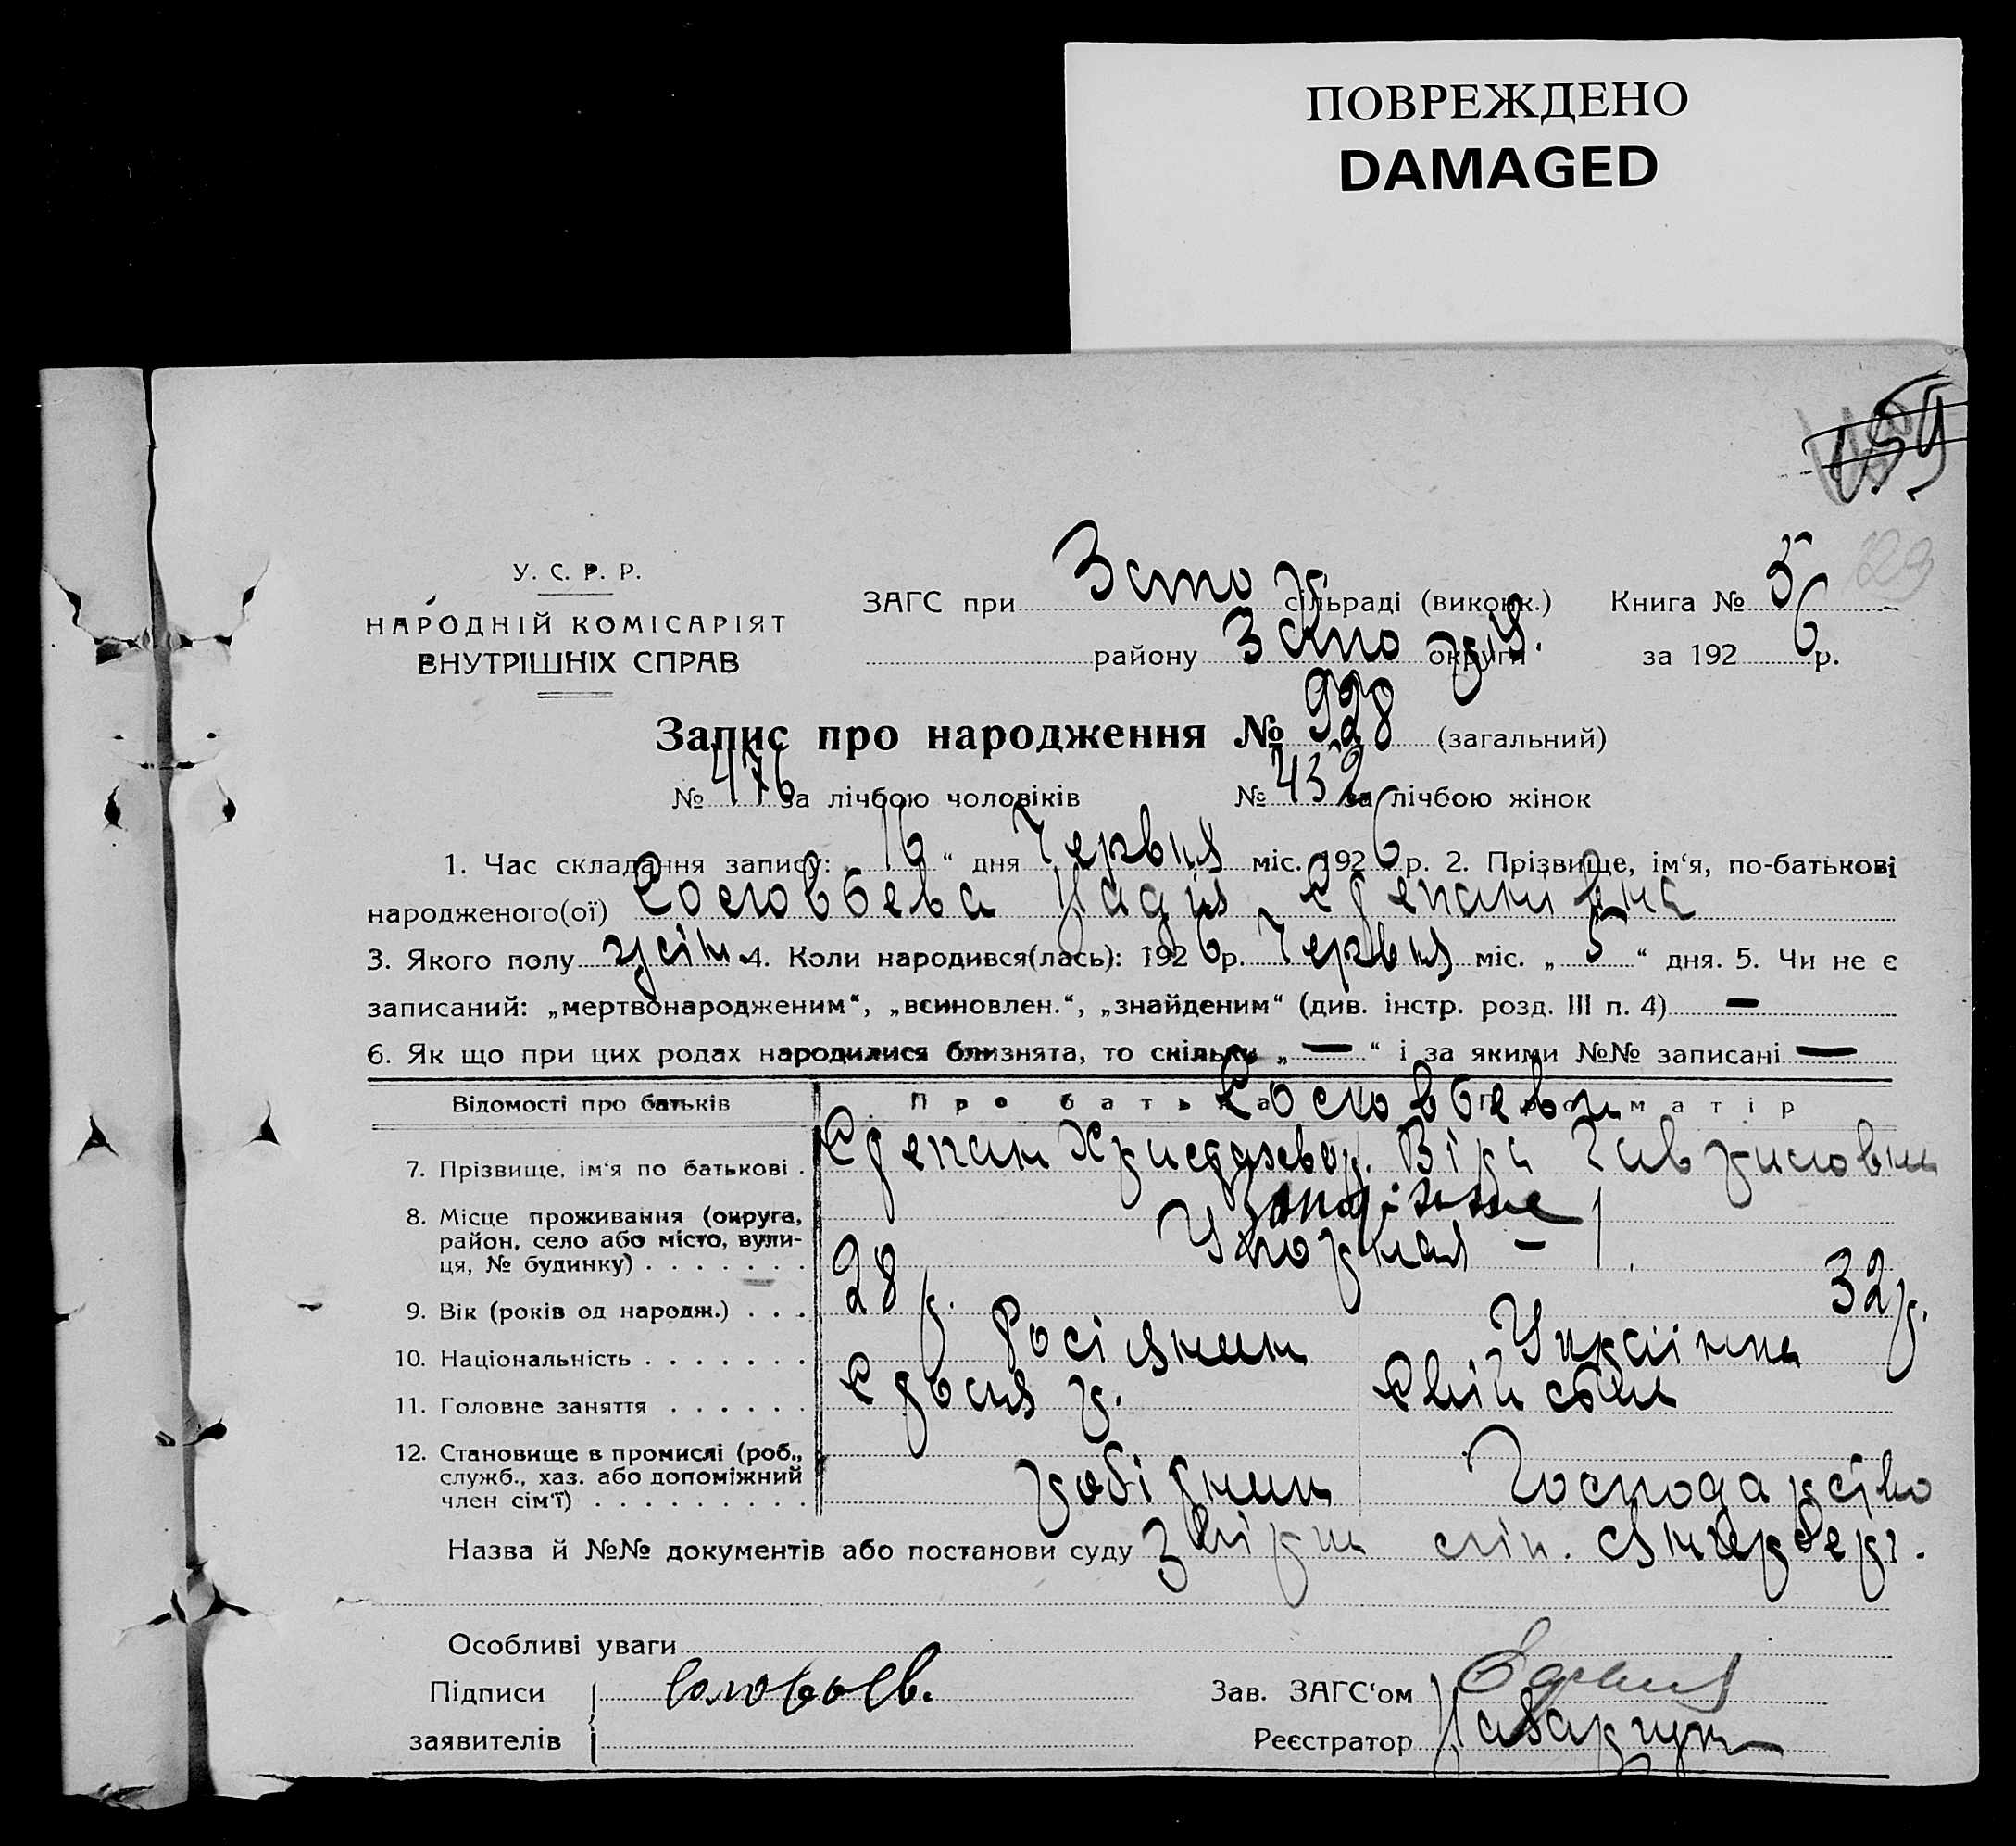 ПОВРЕЖДЕНО
DAMAGED
159
129
У. С. Р. Р.
НАРОДНІЙ КОМІСАРІЯТ
ВНУТРІШНІХ СПРАВ
ЗАГС при сільраді (виконк.) Книга № 5
району округи за 1926 р.
Запис про народження № 928 (загальний)
№ 476 за лічбою чоловіків № 432 за лічбою жінок
1. Час складання запису: 16 “ дня Червня міс. 1926 р. 2. Прізвище, ім‘я, по-батькові
народженого(ої) Соловьева Надія Степанівна
3. Якого полу жін. 4. Коли народився(лась): 1926 р. Червня міс. „ 5 “ дня. 5. Чи не є
записаний: „мертвонародженим“, „всиновлен.“, „знайденим“ (див. інстр. розд. III п. 4) —
6. Як що при цих родах народилися близнята, то скільки „ — “ і за якими №№ записані —
Відомості про батьків Про батька Про матір
Соловьеви
7. Прізвище, ім‘я по батькові . Степан Віра Гавриловна
8. Місце проживання (округа, район, село або місто, вулиця, № будинку) . . . . . . . Запоріжжє
9. Вік (років од народж.) . . . 28 р. 32 р.
10. Національність . . . . . . . Росіянин Українка
11. Головне заняття . . . . . . Свійське
12. Становище в промислі (роб., служб., хаз. або допоміжний член сім‘ї) . . . . . . . . . робітник Господарство
Назва й №№ документів або постанови суду
Особливі уваги
Підписи Соловьев. Зав. ЗАГС‘ом
заявителів Реєстратор